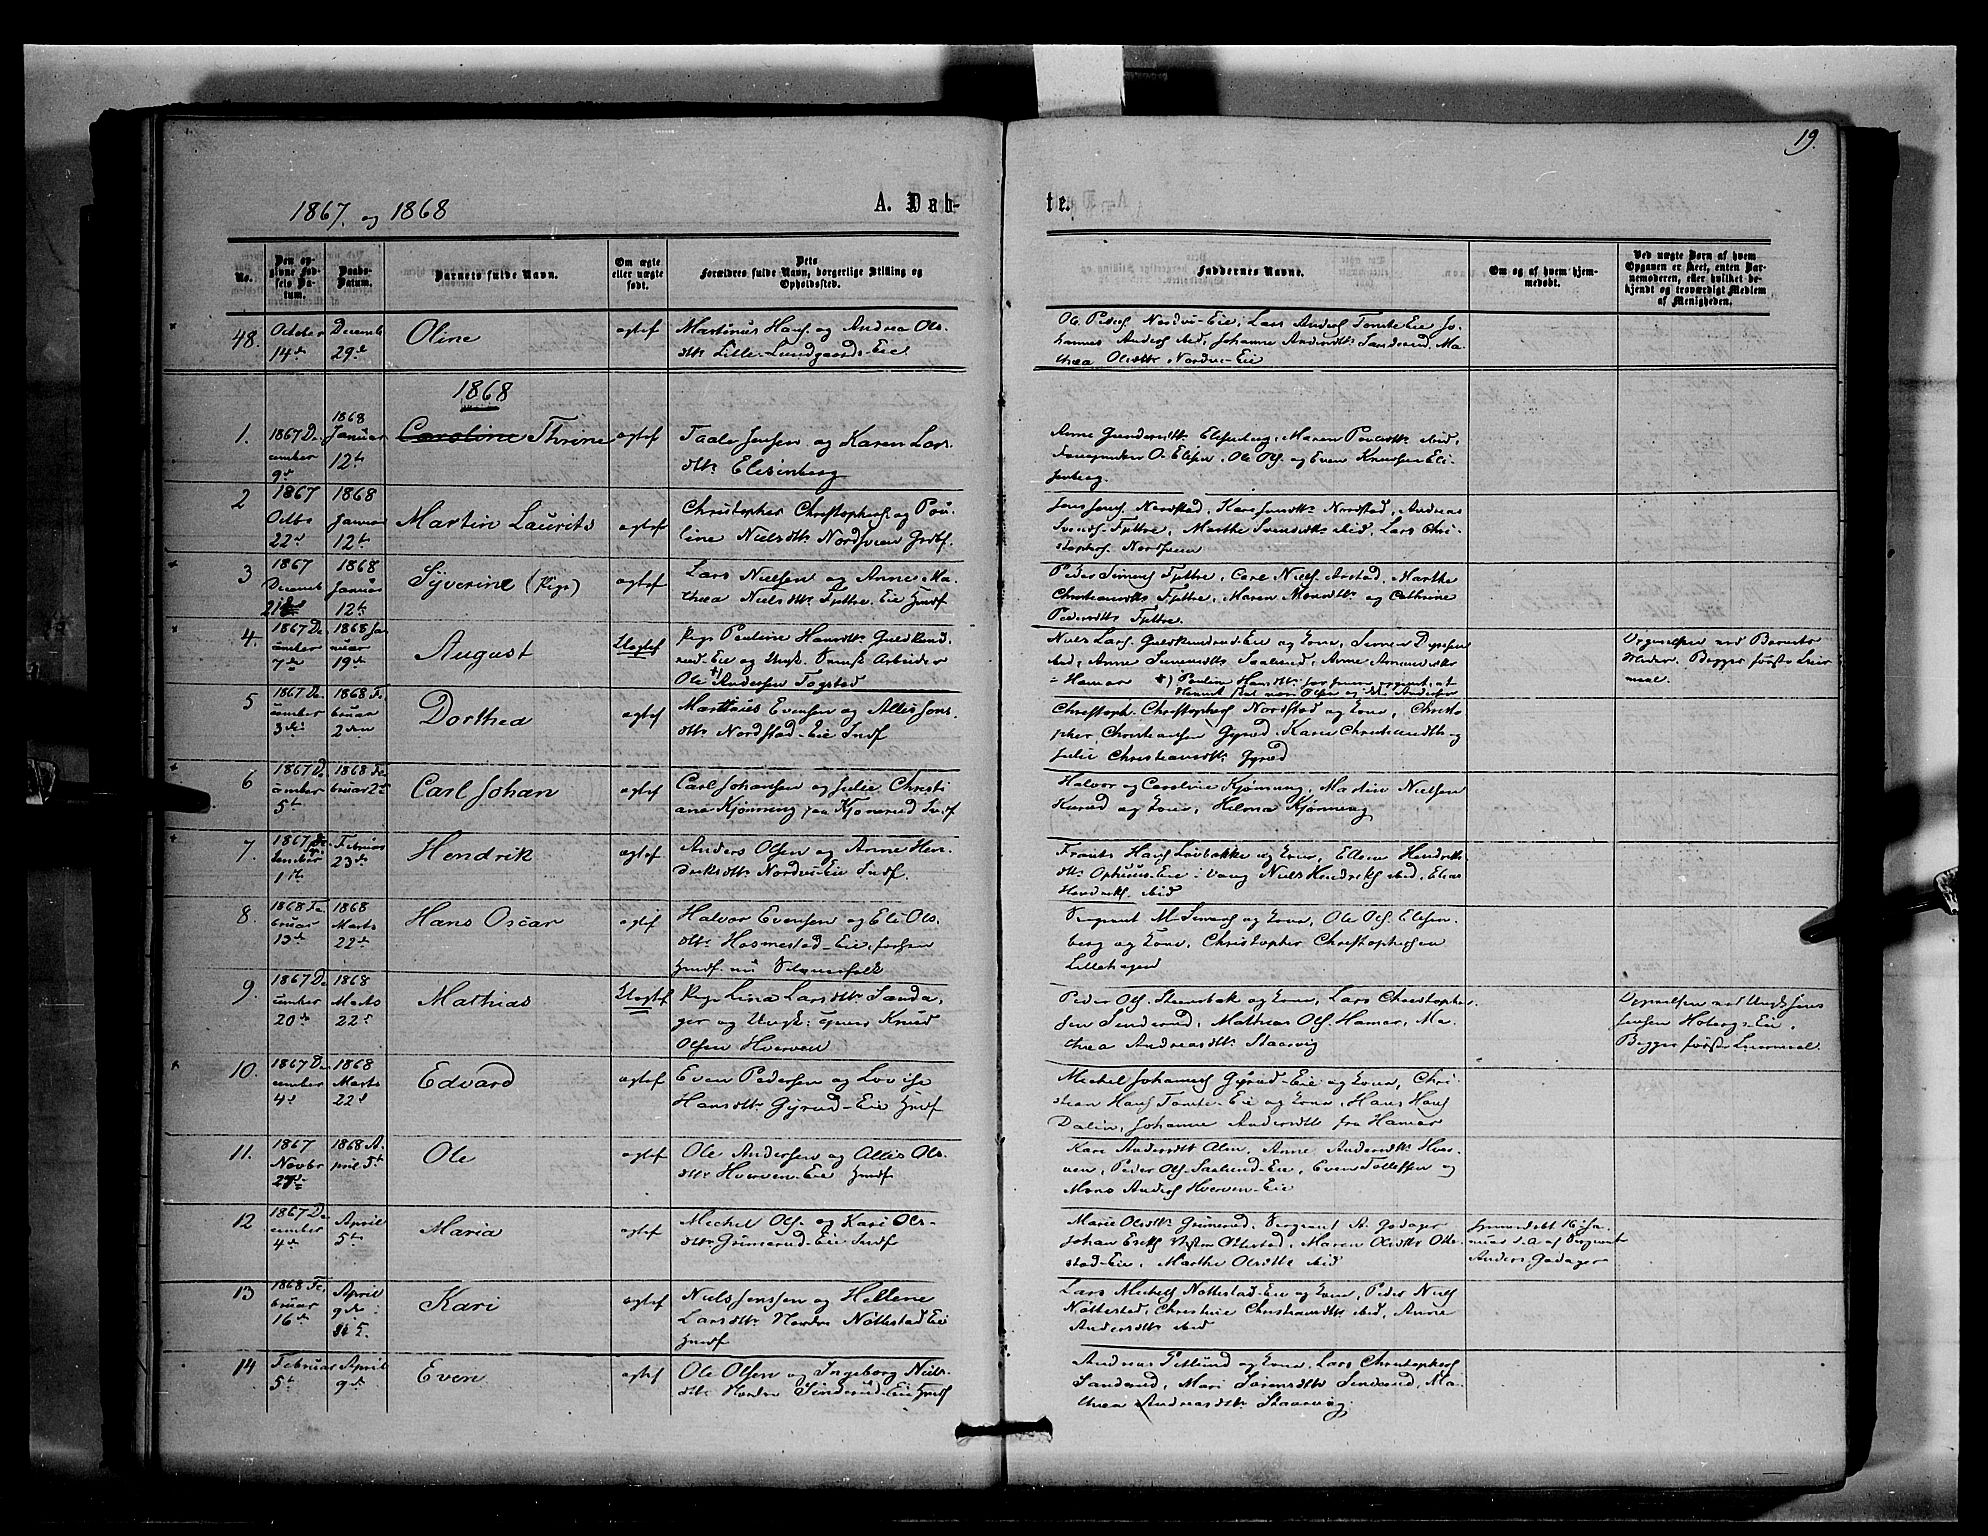 19.
1867 og 1868
A. Døb-
te.
No.
Den op-
givne Fød-
sels Da-
tum.
Daabs-
Datum.
Barnets fulde Navn.
Om ægte
eller uægte
født.
Dets
Forældres fulde Navn, borgerlige Stilling og
Opholdssted.
Faddernes Navne.
Om og af hvem hjem-
medøbt.
Ved uægte Børn af hvem
Opgaven er skeet, enten Bar-
nemoderen, eller hvilket be-
kjendt og troværdigt Medlem
af Menigheden.
48.
October
14de
Decemb
29de
Oline
ægtef
Martinus Hans. og Andrea Ols-
dtr. Lille-Lundgaards-Eie
Ole Peders Nordvi-Eie, Lars Anders Tomte Eie Jo-
hannes Anders ibid, Johanne Andersdtr. Sanderud, Ma-
thea Olsdtr. Nordvi-Eie
1868
1.
1867 De-
cember
9de
1868
Januar
12te
Caroline Thrine
ægtef
Taale Jensen og Karen Lars-
dtr. Elisenberg
Anne Gundersdtr. Elisenberg, Maren Poulsdtr. ibid,
O. Elisen, Ole Ols. og Even Knudsen Eli-
senberg.
2
1867
Octbr
22de
1868
Januar
12te
Martin Laurits
ægtef
Christopher Christophers og Pou-
line Nielsdtr. Nordsveen Grdbf.
Jens Jens Nordstad, Kari Jensdtr. Nordstad, Andreas
Svends. Fjettre, Marthe Svendsdtr. ibid, Lars Chri-
stophers. Nordsveen
3
1867
Decemb
21de
1868
Januar
12te
Syverine (Pige)
ægtef
Lars Nielsen og Anne Ma-
thea Nielsdtr. Fjettre-Eie Husf
Peder Simens Fjettre, Carl Niels. Arstad, Marthe
Christiansdtr. Fjettre, Maren Monsdtr. og Cathrine
Pedersdtr. Fjettre.
4.
1867 De-
cember
7de
1868 Ja-
nuar
19de
August
Uægtef
Pige Pauline Hansdtr. Guldkund-
rud-Eie og Ungk. Svensk Arbeider
Ole *) Andersen Togstad
Niels Lars. Guldkundrud-Eie og Kone, Simen
ibid, Anne Simensdtr. Saalund, Anne Amundsdtr
- Hamar *) Pauline Hansdtr.
Olsen og ikke Andersen
Opgivelsen ved Barnets
Moder. Begges første Leier-
maal.
5
1867 De-
cember
3die
1868 Fe-
bruar
2den
Dorthea
ægtef
Matthias Evensen og Allis Jons-
dtr. Nordstad-Eie Indf
Christoph. Christophers Nordstad og Kone, Christo-
pher Christiansen Gyrud, Karen Christiansdtr. og
Julie Christiansdtr. Gyrud
6
1867 De-
cember
5te
1868 Fe-
bruar 2de
Carl Johan
ægtef
Carl Johansen og Julie Christi-
ane Kjønning paa Indf
Halvor og Caroline Kjønning, Martin Nielsen
og Kone, Helma Kjønning
7.
1867
1ste
Februar
23de
Hendrik
ægtef
Anders Olsen og Anne Hen-
driksdtr. Nordvi-Eie Indf.
Frants Hans Løvbakke og Kone, Ellen Hendriks-
dtr. Ophuus-Eie i Vang Niels Hendriks ibid, Elias
Hendriks. ibid
8.
1868 Fe-
bruar
13de
1868
Marts
22de
Hans Oscar
ægtef
Halvor Evensen og Eli Ols-
dtr. Hosmestad-Eie, forhen
Husf. nu
Sergeant M. Simens og Kone, Ole Ols. Elisen-
berg og Kone, Christopher Christophersen
Lillehagen
9.
1867 De-
cember
20de
1868
Marts
22de
Mathias
Uægtef
Pige Lina Larsdtr. Sanda-
ger og Ungk: Knud
Olsen Hverven
Peder Ols. Steenbæk og Kone, Lars Christopher-
sen Sinderud, Mathias Ols. Hamar, Ma-
thea Andreasdtr. Staarvig
Opgivelsen ved Ungk Jens
Jensen Hoberg-Eie.
Begges første Leiermaal.
10.
1867 De-
cember
4de
1868
Marts
22de
Edvard
ægtef
Even Pedersen og Lovise
Hansdtr. Gyrud-Eie Husf
Michel Johannes Gyrud-Eie og Kone, Chri-
stian Hans Tomte-Eie og Kone, Hans Hans
Dalin, Johanne Andersdtr. fra Hamar
11.
1867
Novbr
27de
1868 A-
pril 5te
Ole
ægtef
Ole Andersen og Allis Ols-
dtr. Hverven-Eie Husf
Kari Andersdtr. Alm, Anne Andersdtr. Hver-
ven, Peder Ols. Saalund-Eie, Even Tollefsen og
Mons Anders Hverven-Eie
12
1867 De-
cember
4de
April
5te
Maria
ægtef
Michel Ols. og Kari Ols-
dtr. Grimerud-Eie Indf
Marie Olsdtr. Grimerud, Sergeant A. Godager
Johan Eriks Vestre Ottestad, Maren Olsdtr. Otte-
stad-Eie, Marthe Olsdtr ibid
Hjemmedøbt 16 Ja-
nuar d. A. af Sergeant
Anders Godager
13
1868 Fe-
bruar
16de
April
9de
Kari
ægtef
Niels Jensen og Hellene
Larsdtr. Nordre Nøttestad Eie
Husf
Lars Michels Nøttestad-Eie og Kone, Peder Niels
Nøttestad, Christine Christiansdtr. ibid, Anne
Andersdtr. ibid
14
Februar
5te
April
9de
Even
ægtef
Ole Olsen og Ingeborg Niels-
dtr. Nordre Sinderud-Eie Husf
Andreas Petlund og Kone, Lars Christophers
Sanderud, Mari Sørensdtr Sinderud, Ma-
thea Andreasdtr. Staarvig.